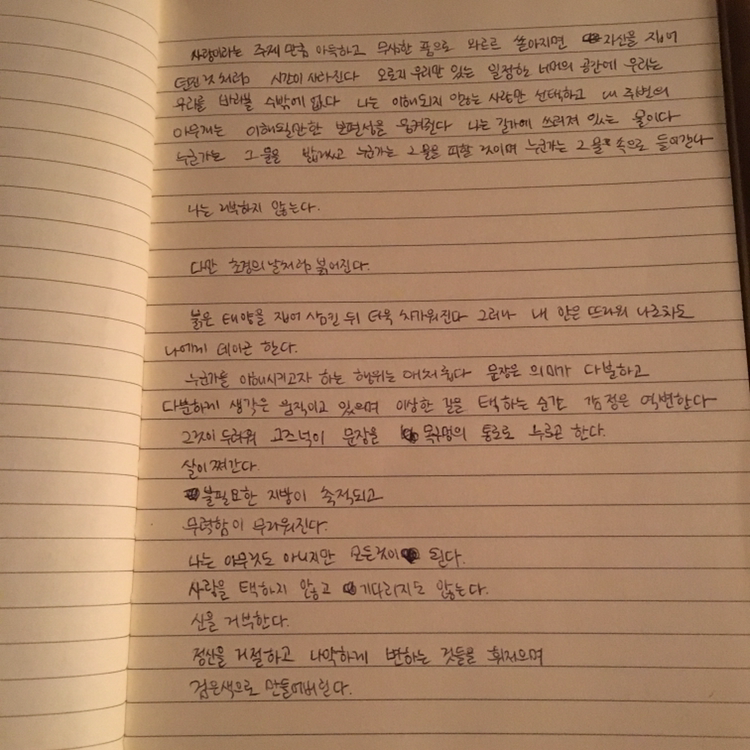 사랑이라는 주제만큼 아득하고 무상한 품으로 와르르 쏟아지면 자신을 집어
던진것처럼 시간이 사라진다 오로지 우리만 있는 일정한 너머의 공간에 우리는
우리를 바라볼 수밖에 없다 나는 이해되지 않는 사랑만 선택하고 내 주변의
아무개는 이해될만한 보편성을 움켜쥔다 나는 길가에 쓰러져 있는 물이다
누군가는 그 물을 밟겠고 누군가는 그 물을 피할 것이며 누군가는 그 물 속으로 들어간다
나는 거부하지 않는다.
다만 초경의 날처럼 붉어진다.
붉은 태양을 집어 삼킨 뒤 더욱 차가워진다 그러나 내 안은 뜨거워 나조차도
나에게 데이곤 한다.
누군가를 이해시키고자 하는 행위는 애처롭다 문장은 의미가 다분하고
다분하게 생각은 움직이고 있으며 이상한 길을 택하는 순간 감정은 역변한다
그것이 두려워 고즈넉이 문장을 목구멍의 통로로 누르곤 한다.
살이 쪄간다.
불필요한 지방이 축적되고
무력함이 부러워진다.
나는 아무것도 아니지만 모든것이 된다.
사랑을 택하지 않고 기다리지도 않는다.
신을 거부한다.
정신을 거절하고 나약하게 변하는 것들을 휘저으며
검은색으로 만들어버린다.